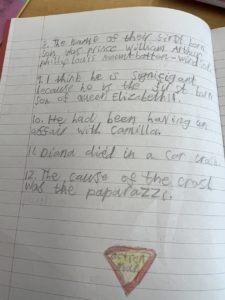 8. The name of their first born
son was prince william Arthur
phillip louis mountbatten-windsor
9. I think he is signisigant
because he is the first born
son of queen elizabeth II.
10. He had been having an
affair with camilla.
11. Diana died in a car crash
12. The cause of the crash
was the paparazzi.